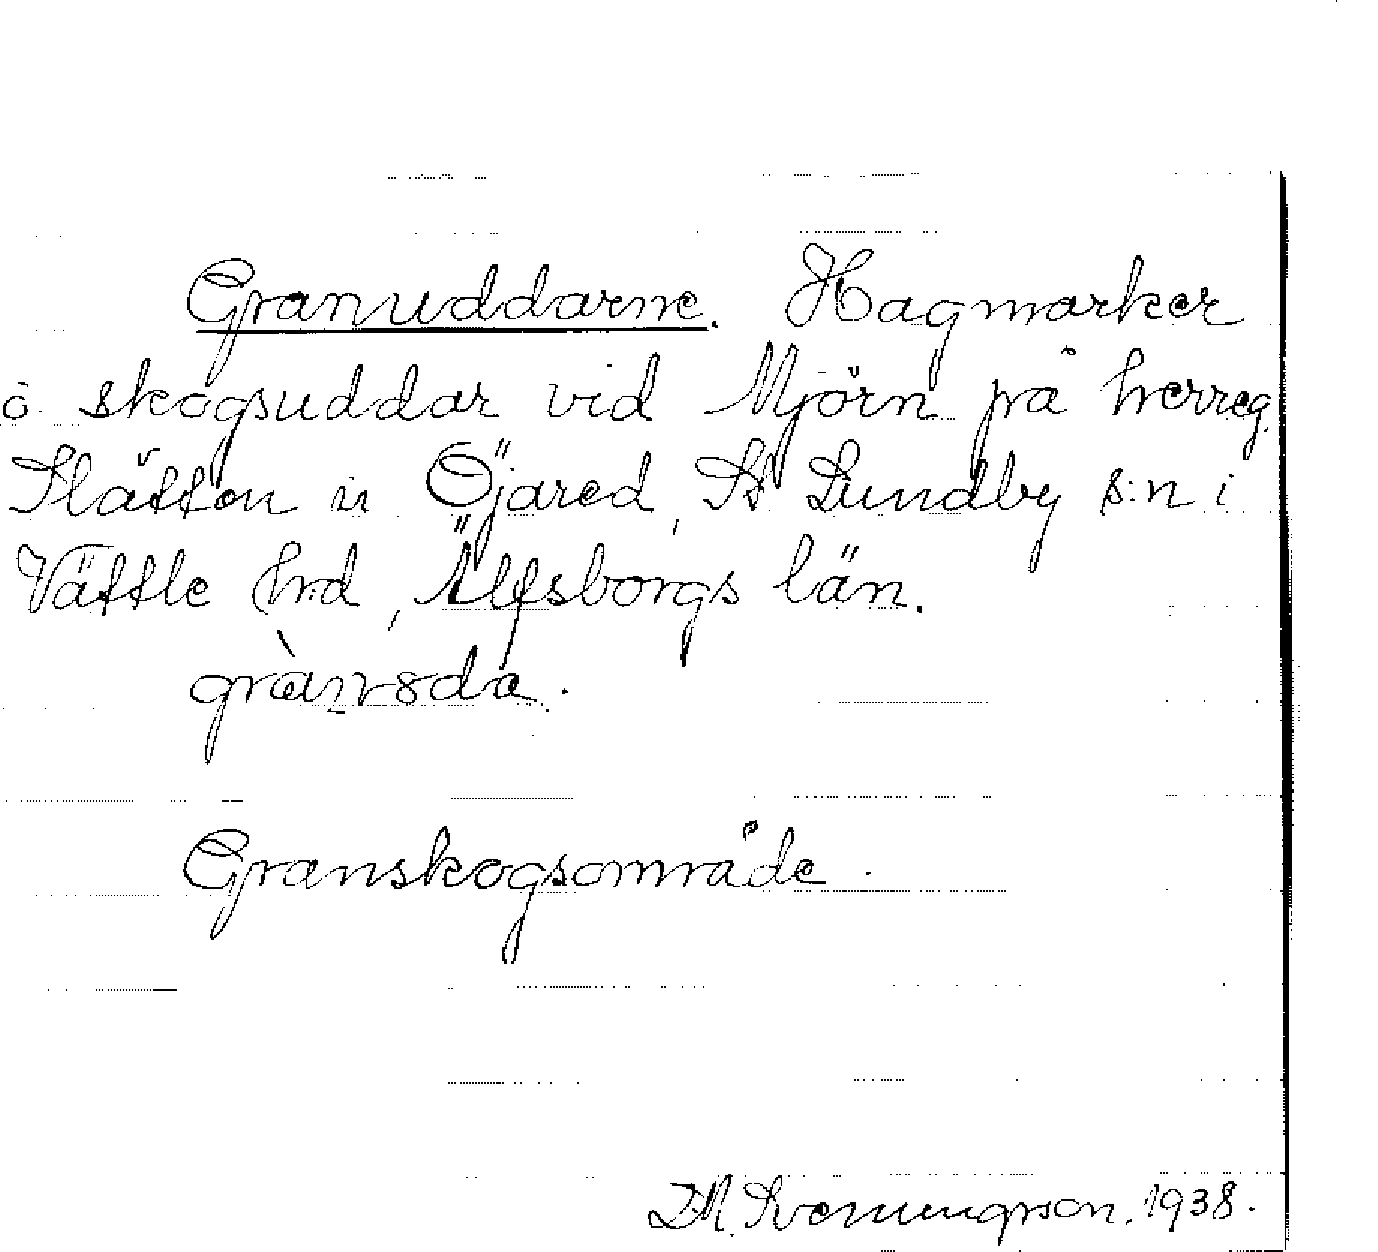 Granuddarne. Hagmarker
o skogsuddar vid Mjörn på herreg.
Slätten u Öjared, St Lundby s:n i
Vättle hrd, Älfsborgs län.
Granskogsområde.
D.M. Svenungsson. 1938.